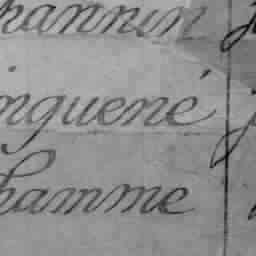 hannin
inguené
hamme